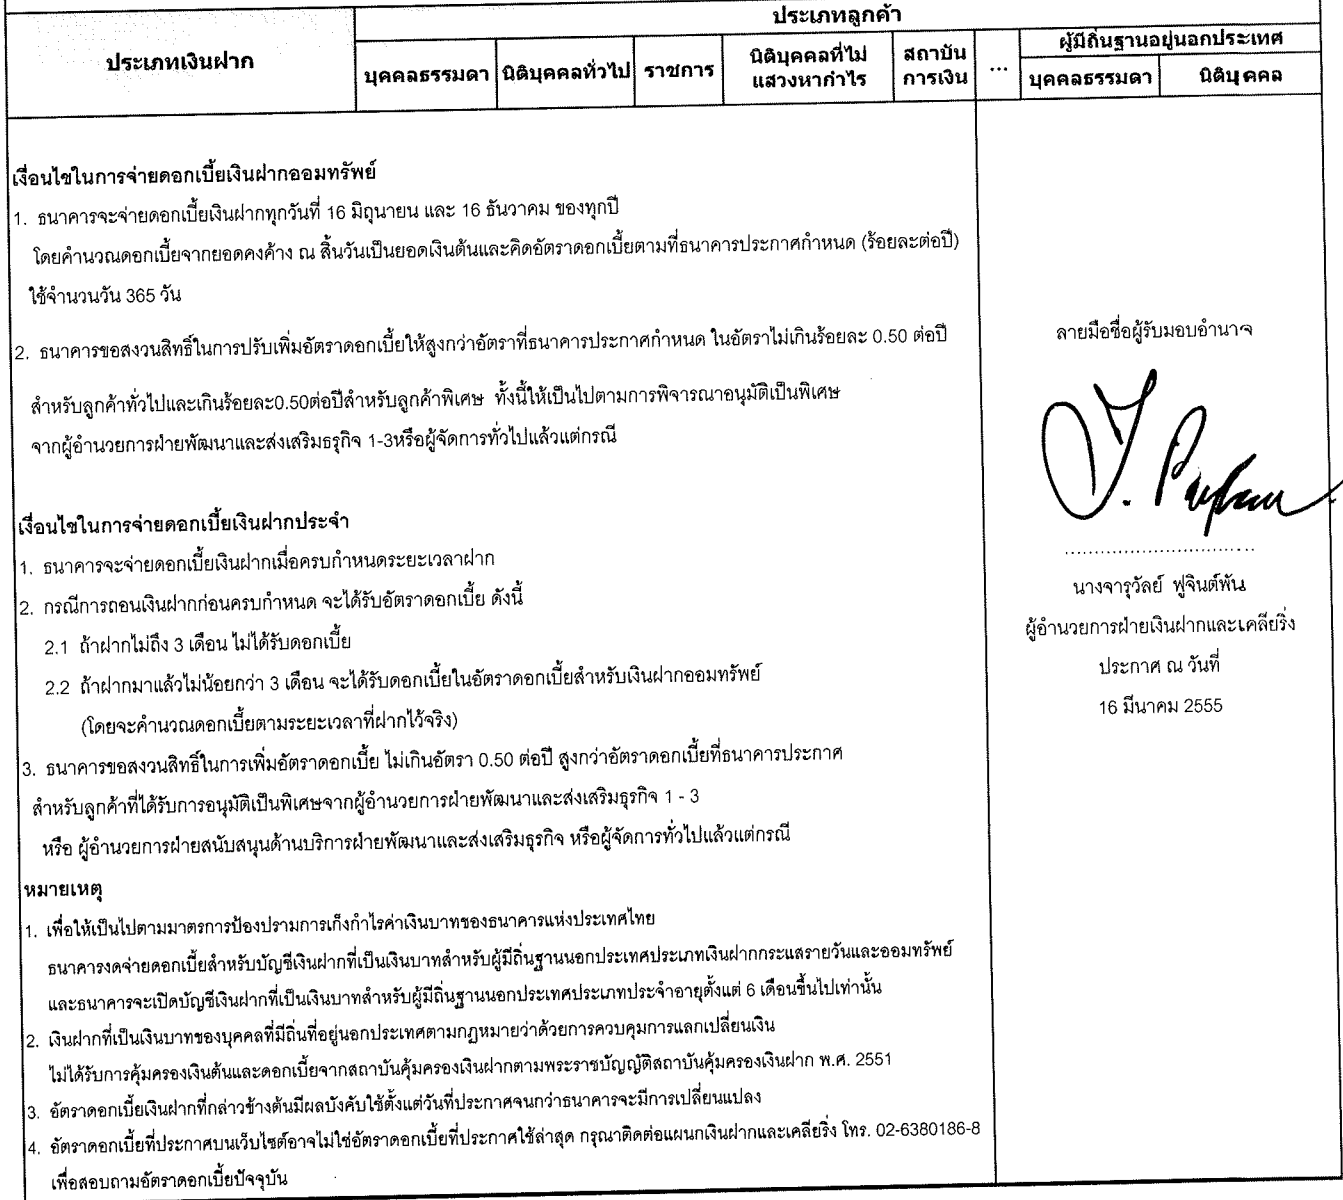 ประเภทลูกค้า
ประเภทเงินฝาก
บุคคลธรรมดา นิติบุคคลทั่วไป ราชการ นิติบุคคลที่ไม่แสวงหากำไร สถาบันการเงิน ... ผู้มีถิ่นฐานอยู่นอกประเทศ
บุคคลธรรมดา นิติบุคคล
เงื่อนไขในการจ่ายดอกเบี้ยเงินฝากออมทรัพย์
1. ธนาคารจะจ่ายดอกเบี้ยเงินฝากทุกวันที่ 16 มิถุนายน และ 16 ธันวาคม ของทุกปี
โดยคำนวณดอกเบี้ยจากยอดคงค้าง ณ สิ้นวันเป็นยอดเงินต้นและคิดอัตราดอกเบี้ยตามที่ธนาคารประกาศกำหนด (ร้อยละต่อปี)
ใช้จำนวนวัน 365 วัน
2. ธนาคารขอสงวนสิทธิ์ในการปรับเพิ่มอัตราดอกเบี้ยให้สูงกว่าอัตราที่ธนาคารประกาศกำหนด ในอัตราไม่เกินร้อยละ 0.50 ต่อปี
สำหรับลูกค้าทั่วไปและเกินร้อยละ0.50ต่อปีสำหรับลูกค้าพิเศษ ทั้งนี้ให้เป็นไปตามการพิจารณาอนุมัติเป็นพิเศษ
จากผู้อำนวยการฝ่ายพัฒนาและส่งเสริมธรุกิจ 1-3หรือผู้จัดการทั่วไปแล้วแต่กรณี
เงื่อนไขในการจ่ายดอกเบี้ยเงินฝากประจำ
1. ธนาคารจะจ่ายดอกเบี้ยเงินฝากเมื่อครบกำหนดระยะเวลาฝาก
2. กรณีการถอนเงินฝากก่อนครบกำหนด จะได้รับอัตราดอกเบี้ย ดังนี้
2.1 ถ้าฝากไม่ถึง 3 เดือน ไม่ได้รับดอกเบี้ย
2.2 ถ้าฝากมาแล้วไม่น้อยกว่า 3 เดือน จะได้รับดอกเบี้ยในอัตราดอกเบี้ยสำหรับเงินฝากออมทรัพย์
(โดยจะคำนวณดอกเบี้ยตามระยะเวลาที่ฝากไว้จริง)
3. ธนาคารขอสงวนสิทธิ์ในการเพิ่มอัตราดอกเบี้ย ไม่เกินอัตรา 0.50 ต่อปี สูงกว่าอัตราดอกเบี้ยที่ธนาคารประกาศ
สำหรับลูกค้าที่ได้รับการอนุมัติเป็นพิเศษจากผู้อำนวยการฝ่ายพัฒนาและส่งเสริมธุรกิจ 1 - 3
หรือ ผู้อำนวยการฝ่ายสนับสนุนด้านบริการฝ่ายพัฒนาและส่งเสริมธุรกิจ หรือผู้จัดการทั่วไปแล้วแต่กรณี
หมายเหตุ
1. เพื่อให้เป็นไปตามมาตรการป้องปรามการเก็งกำไรค่าเงินบาทของธนาคารแห่งประเทศไทย
ธนาคารงดจ่ายดอกเบี้ยสำหรับบัญชีเงินฝากที่เป็นเงินบาทสำหรับผู้มีถิ่นฐานนอกประเทศประเภทเงินฝากกระแสรายวันและออมทรัพย์
และธนาคารจะเปิดบัญชีเงินฝากที่เป็นเงินบาทสำหรับผู้มีถิ่นฐานนอกประเทศประเภทประจำอายุตั้งแต่ 6 เดือนขึ้นไปเท่านั้น
2. เงินฝากที่เป็นเงินบาทของบุคคลที่มีถิ่นที่อยู่นอกประเทศตามกฎหมายว่าด้วยการควบคุมการแลกเปลี่ยนเงิน
ไม่ได้รับการคุ้มครองเงินต้นและดอกเบี้ยจากสถาบันคุ้มครองเงินฝากตามพระราชบัญญัติสถาบันคุ้มครองเงินฝาก พ.ศ. 2551
3. อัตราดอกเบี้ยเงินฝากที่กล่าวข้างต้นมีผลบังคับใช้ตั้งแต่วันที่ประกาศจนกว่าธนาคารจะมีการเปลี่ยนแปลง
4. อัตราดอกเบี้ยที่ประกาศบนเว็บไซต์อาจไม่ใช่อัตราดอกเบี้ยที่ประกาศใช้ล่าสุด กรุณาติดต่อแผนกเงินฝากและเคลียริ่ง โทร. 02-6380186-8
เพื่อสอบถามอัตราดอกเบี้ยปัจจุบัน
ลายมือชื่อผู้รับมอบอำนาจ
นางจารุวัลย์ ฟูจินต์พัน
ผู้อำนวยการฝ่ายเงินฝากและเคลียริ่ง
ประกาศ ณ วันที่
16 มีนาคม 2555